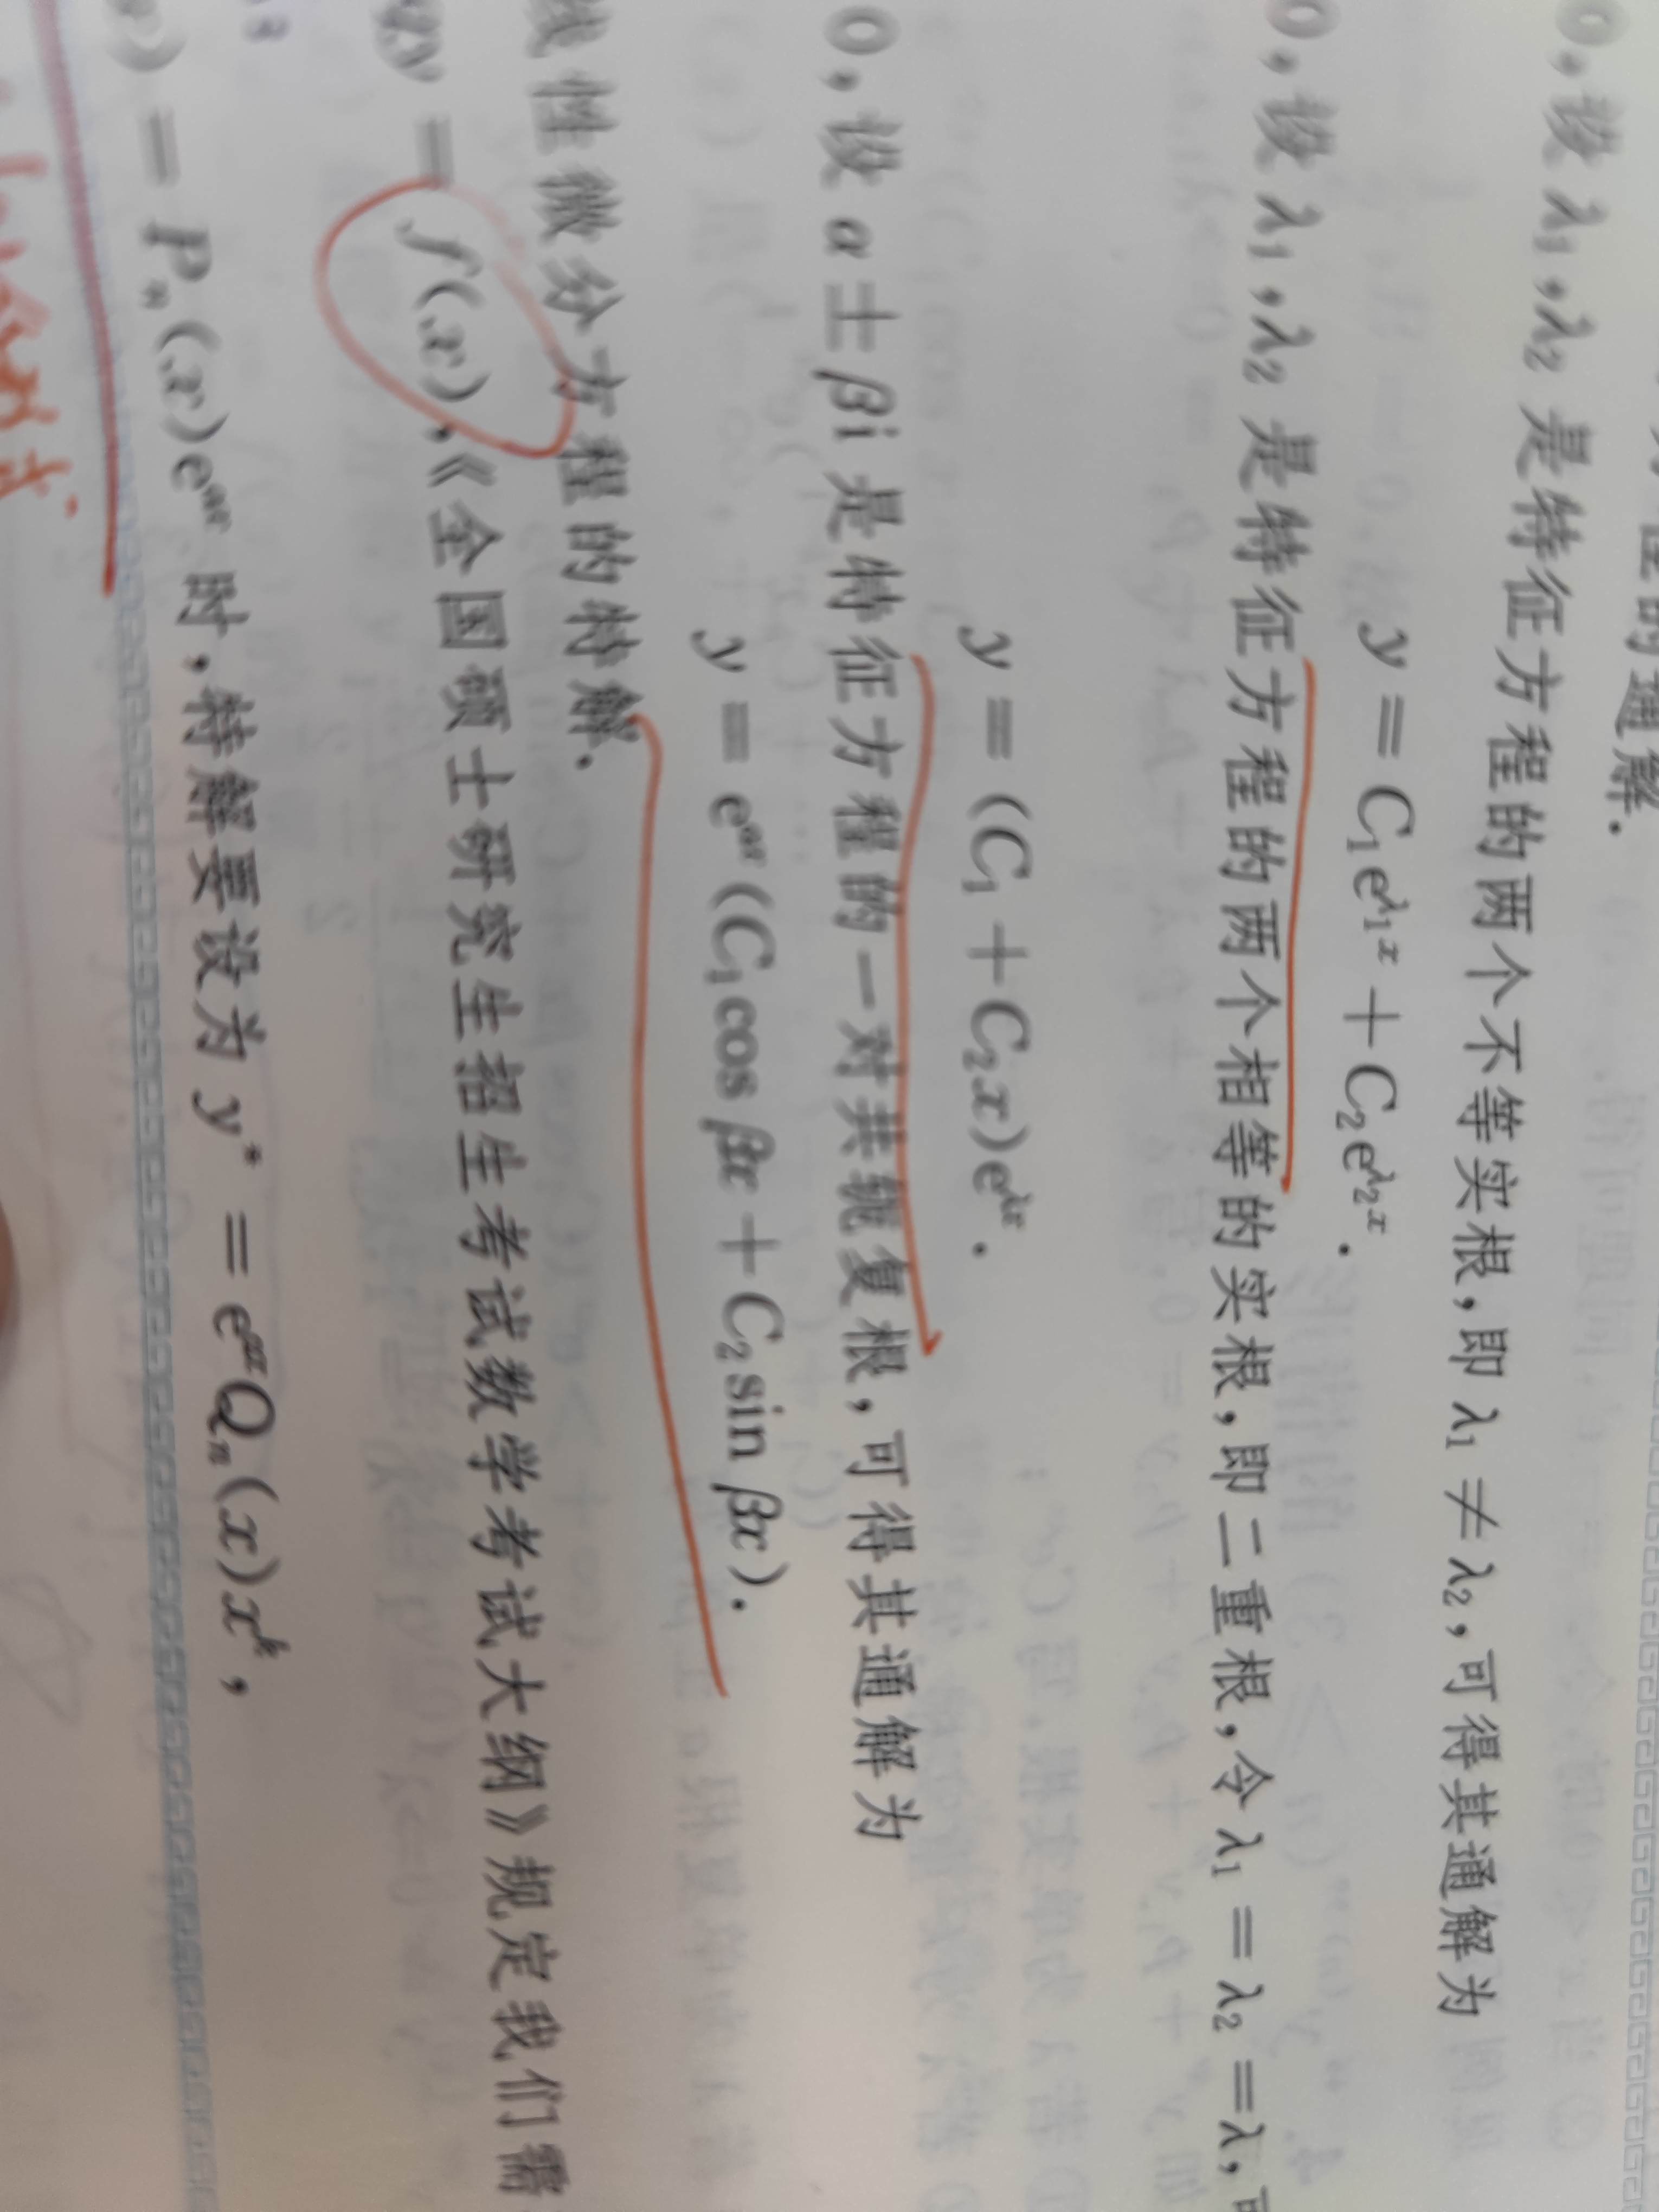 程的通解.
0,设 λ₁,λ₂ 是特征方程的两个不等实根,即 λ₁ ≠ λ₂,可得其通解为
y = C₁e^{λ₁x} + C₂e^{λ₂x}.
0,设 λ₁,λ₂ 是特征方程的两个相等的实根,即二重根,令 λ₁ = λ₂ = λ,
y = (C₁ + C₂x)e^{λx}.
0,设 α ± βi 是特征方程的一对共轭复根,可得其通解为
y = e^{αx}(C₁cos βx + C₂sin βx).
线性微分方程的特解.
qy = f(x),《全国硕士研究生招生考试数学考试大纲》规定我们需
) = Pₙ(x)e^{αx} 时,特解要设为 y* = e^{αx}Qₙ(x)x^k,